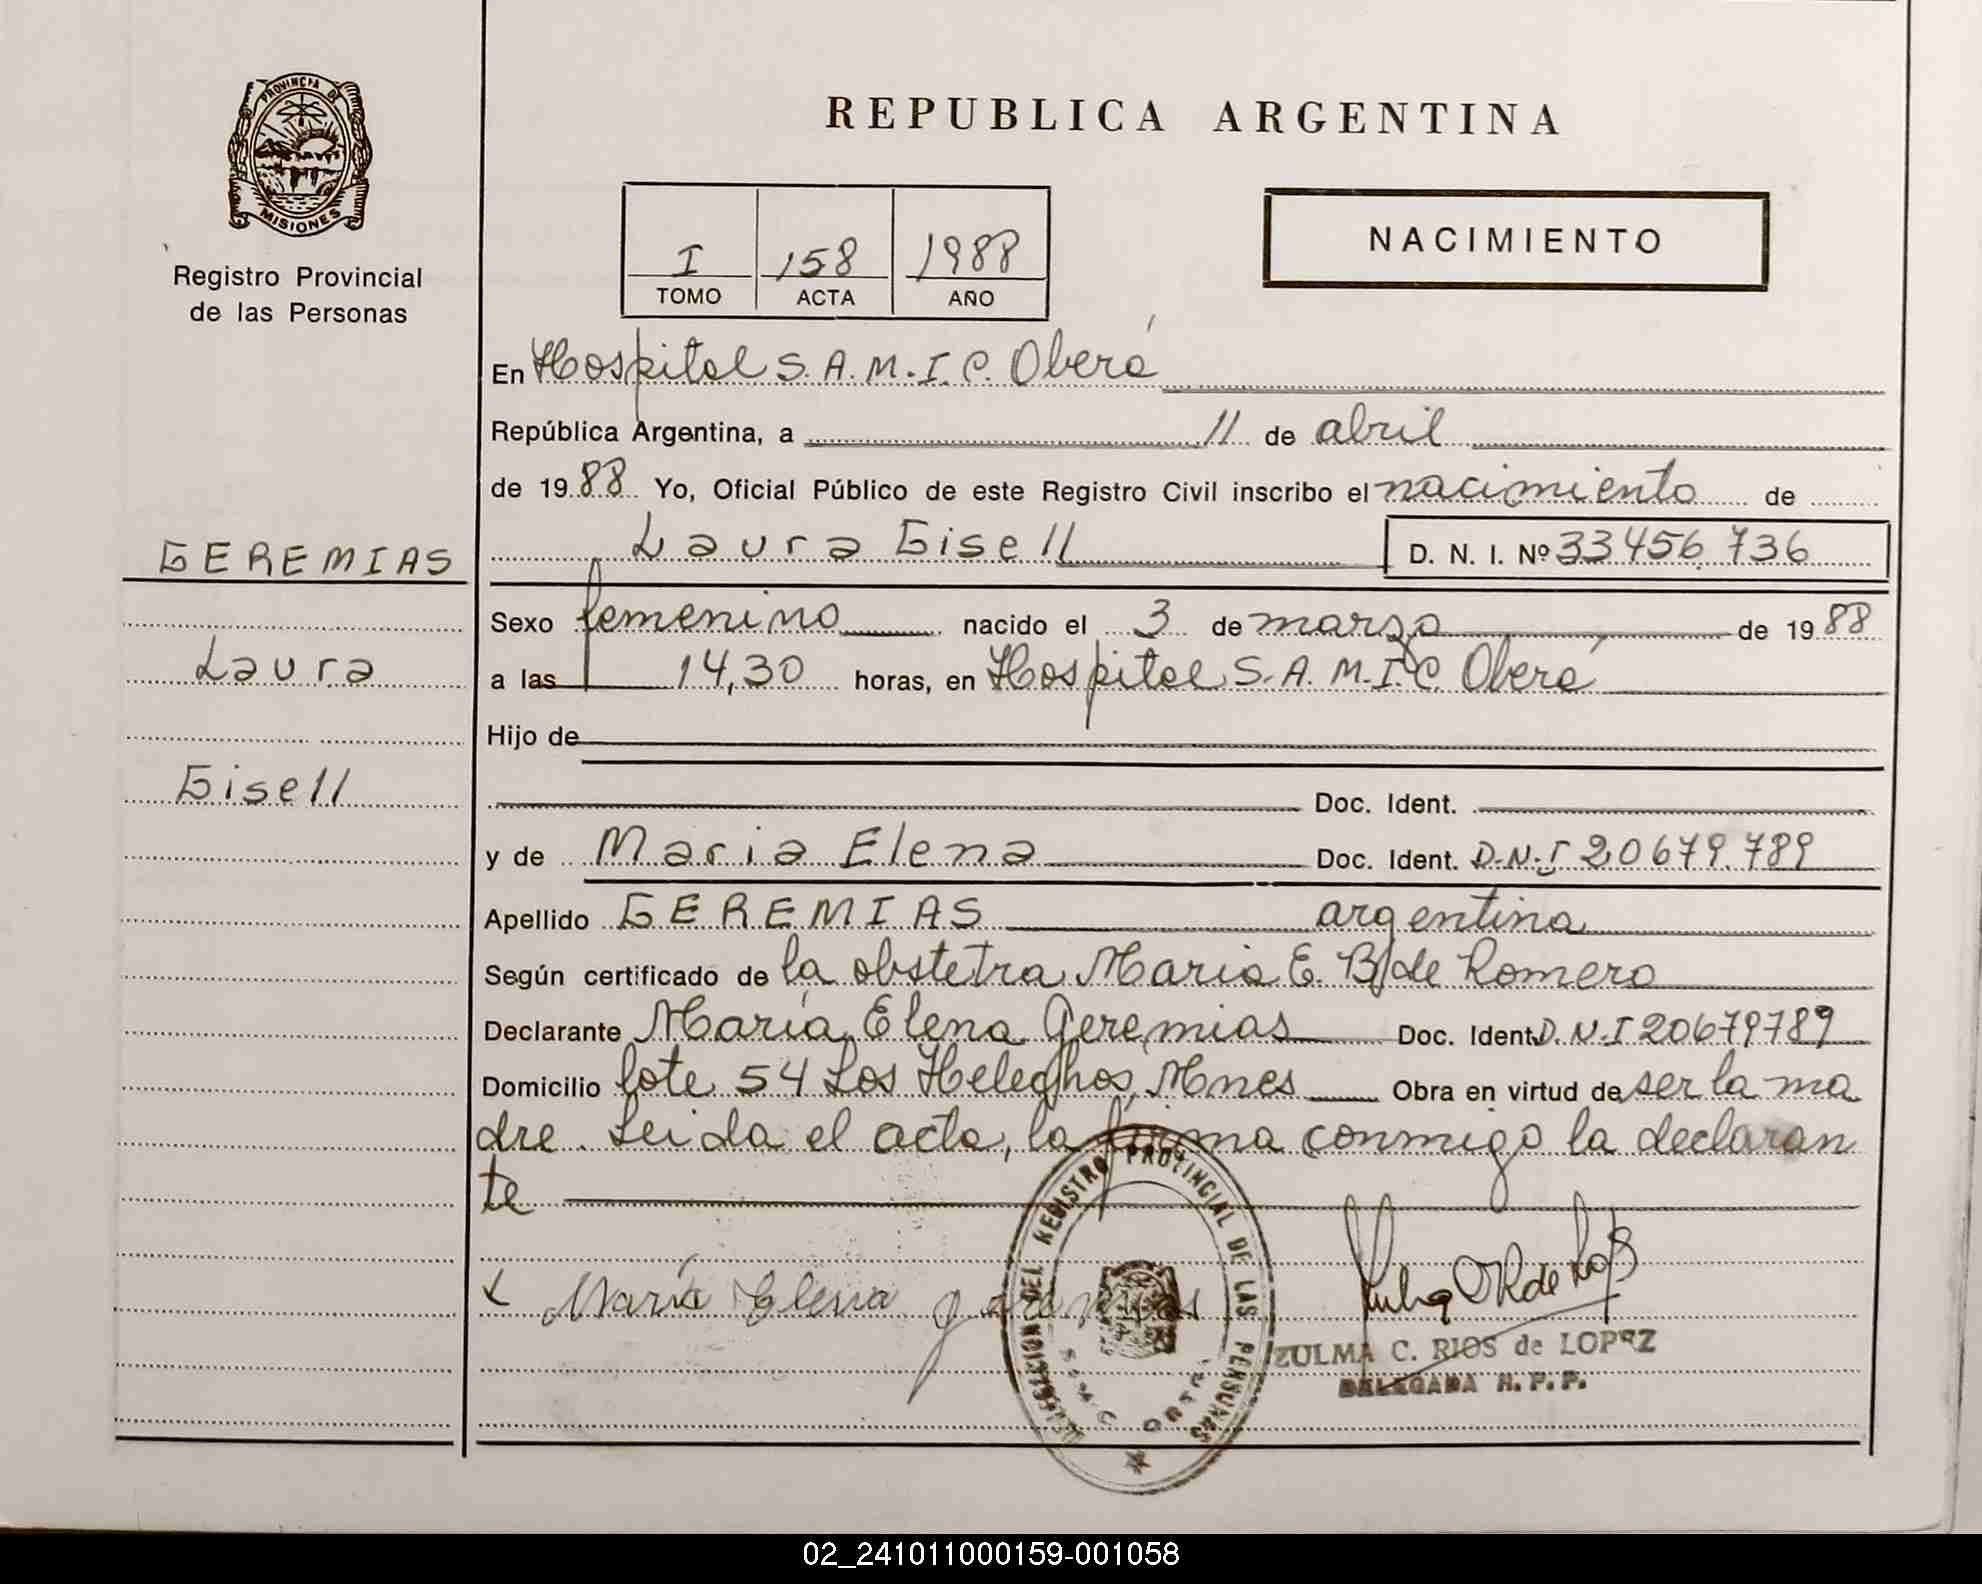 PROVINCIA DE
MISIONES
Registro Provincial
de las Personas
GEREMIAS
Laura
Gisell
REPUBLICA ARGENTINA
I 158 1988
TOMO ACTA AÑO
NACIMIENTO
En Hospital S.A.M.I.C. Oberá
República Argentina, a 11 de abril
de 1988 Yo, Oficial Público de este Registro Civil inscribo el nacimiento de
Laura Gisell D. N. I. Nº 33456.736
Sexo femenino nacido el 3 de marzo de 1988
a las 14,30 horas, en Hospital S.A.M.I.C. Oberá
Hijo de
Doc. Ident.
y de Maria Elena Doc. Ident. D.N.I 20679.789
Apellido GEREMIAS argentina
Según certificado de la obstetra Maria E. B/de Romero
Declarante María Elena Geremias Doc. Ident. D.N.I 20679789
Domicilio lote 54 Los Heleghos, Mnes Obra en virtud de ser la ma
dre. Leida el acta, la firma conmigo la declaran
te
María Elena geremias
DELEGACION DEL REGISTRO PROVINCIAL DE LAS PERSONAS
ZULMA C. RIOS de LOPEZ
DELEGADA R. P. P.
02_241011000159-001058